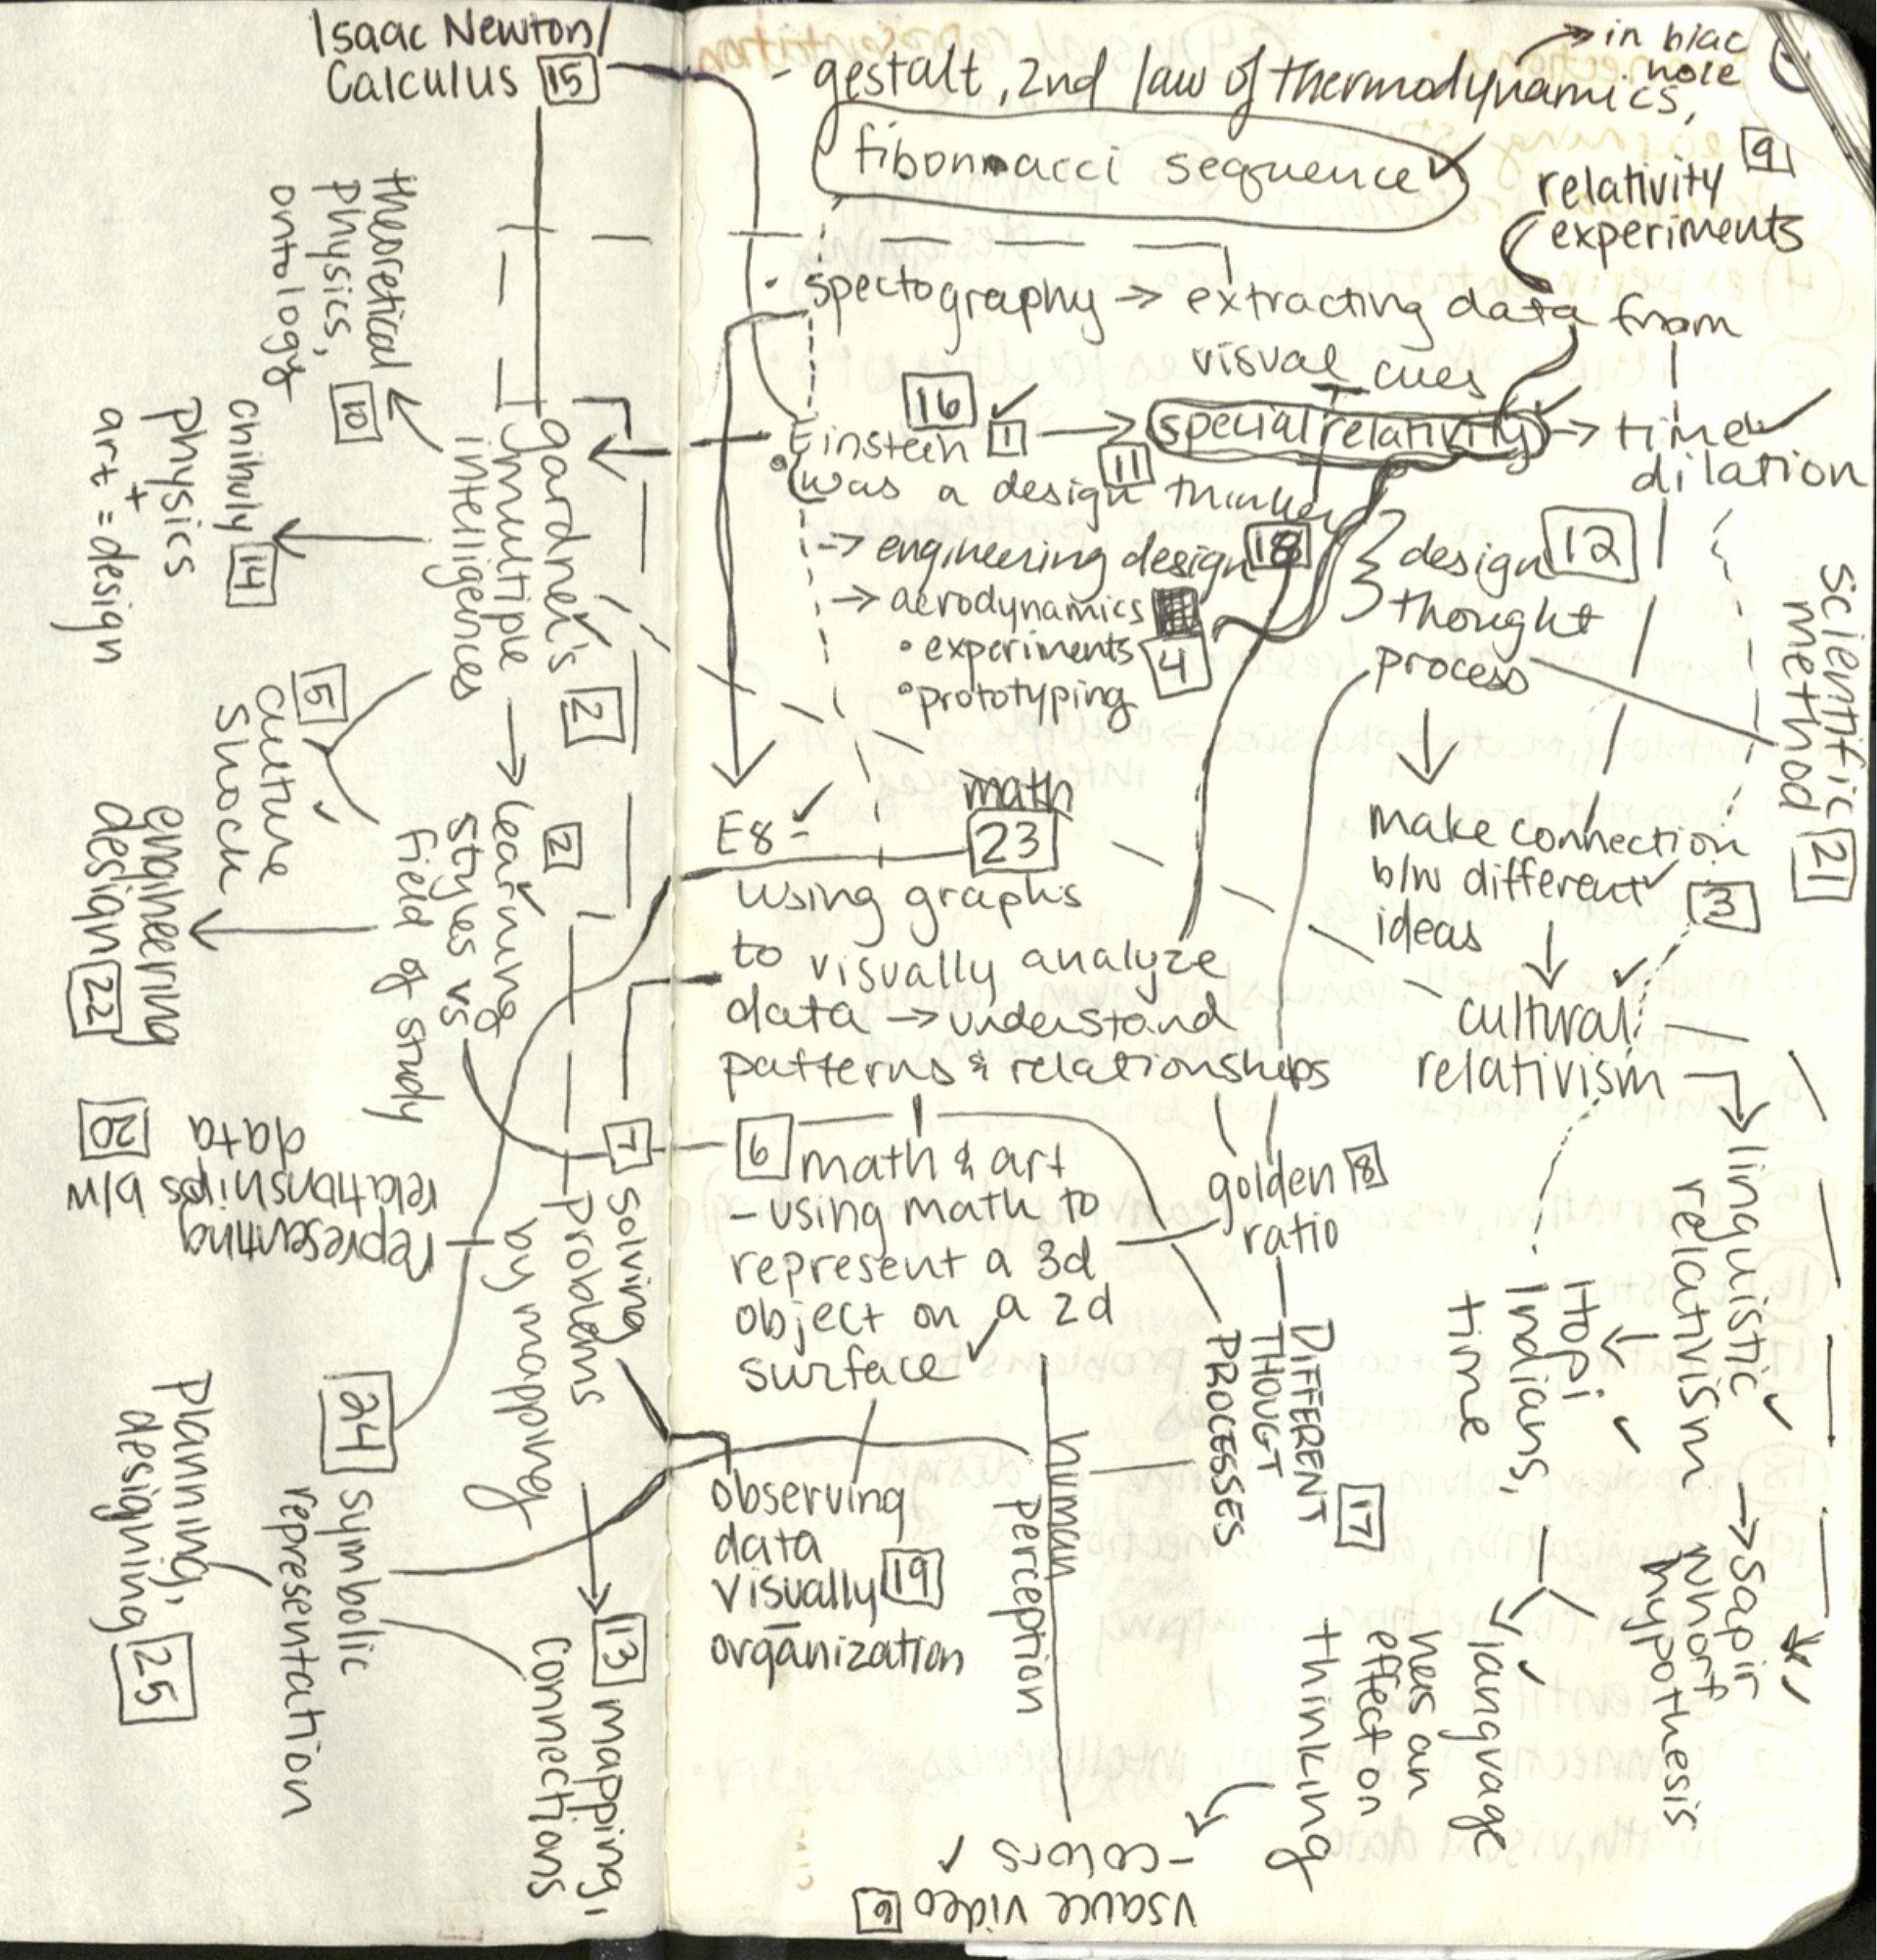 Isaac Newton/
Calculus 15
theoretical
physics,
ontology
10
chihuly 14
physics
+
art = design
gardner's 2
multiple
intelligences
5
culture
shock
2
learning
styles vs
field of study
engineering
design 22
representing
relationships b/w
data
20
7 solving
problems
by mapping
24 symbolic
representation
planning,
designing 25
13 mapping,
connections
- gestalt, 2nd law of thermodynamics,
→ in blac
hole
fibonnacci sequence ✓
9
relativity
experiments
• spectography → extracting data from
visual cues
16
Einstein 1 → special relativity → time
dilation
11
• was a design thinker
→ engineering design 18
→ aerodynamics
• experiments
• prototyping
4
design 12
thought
process
scientific
method 21
E8 - ✓
math
23
using graphs
to visually analyze
data → understand
patterns & relationships
make connection
b/w different
ideas
3
cultural
relativism
6 math & art
- using math to
represent a 3d
object on a 2d
surface ✓
golden 8
ratio
DIFFERENT
THOUGT
PROCESSES
17
linguistic
relativism → sapir
whorf
hypothesis
Hopi
Indians,
time
language
has an
effect on
thinking
observing
data
visually 19
organization
human
perception
- colors ✓
vsauce video 6